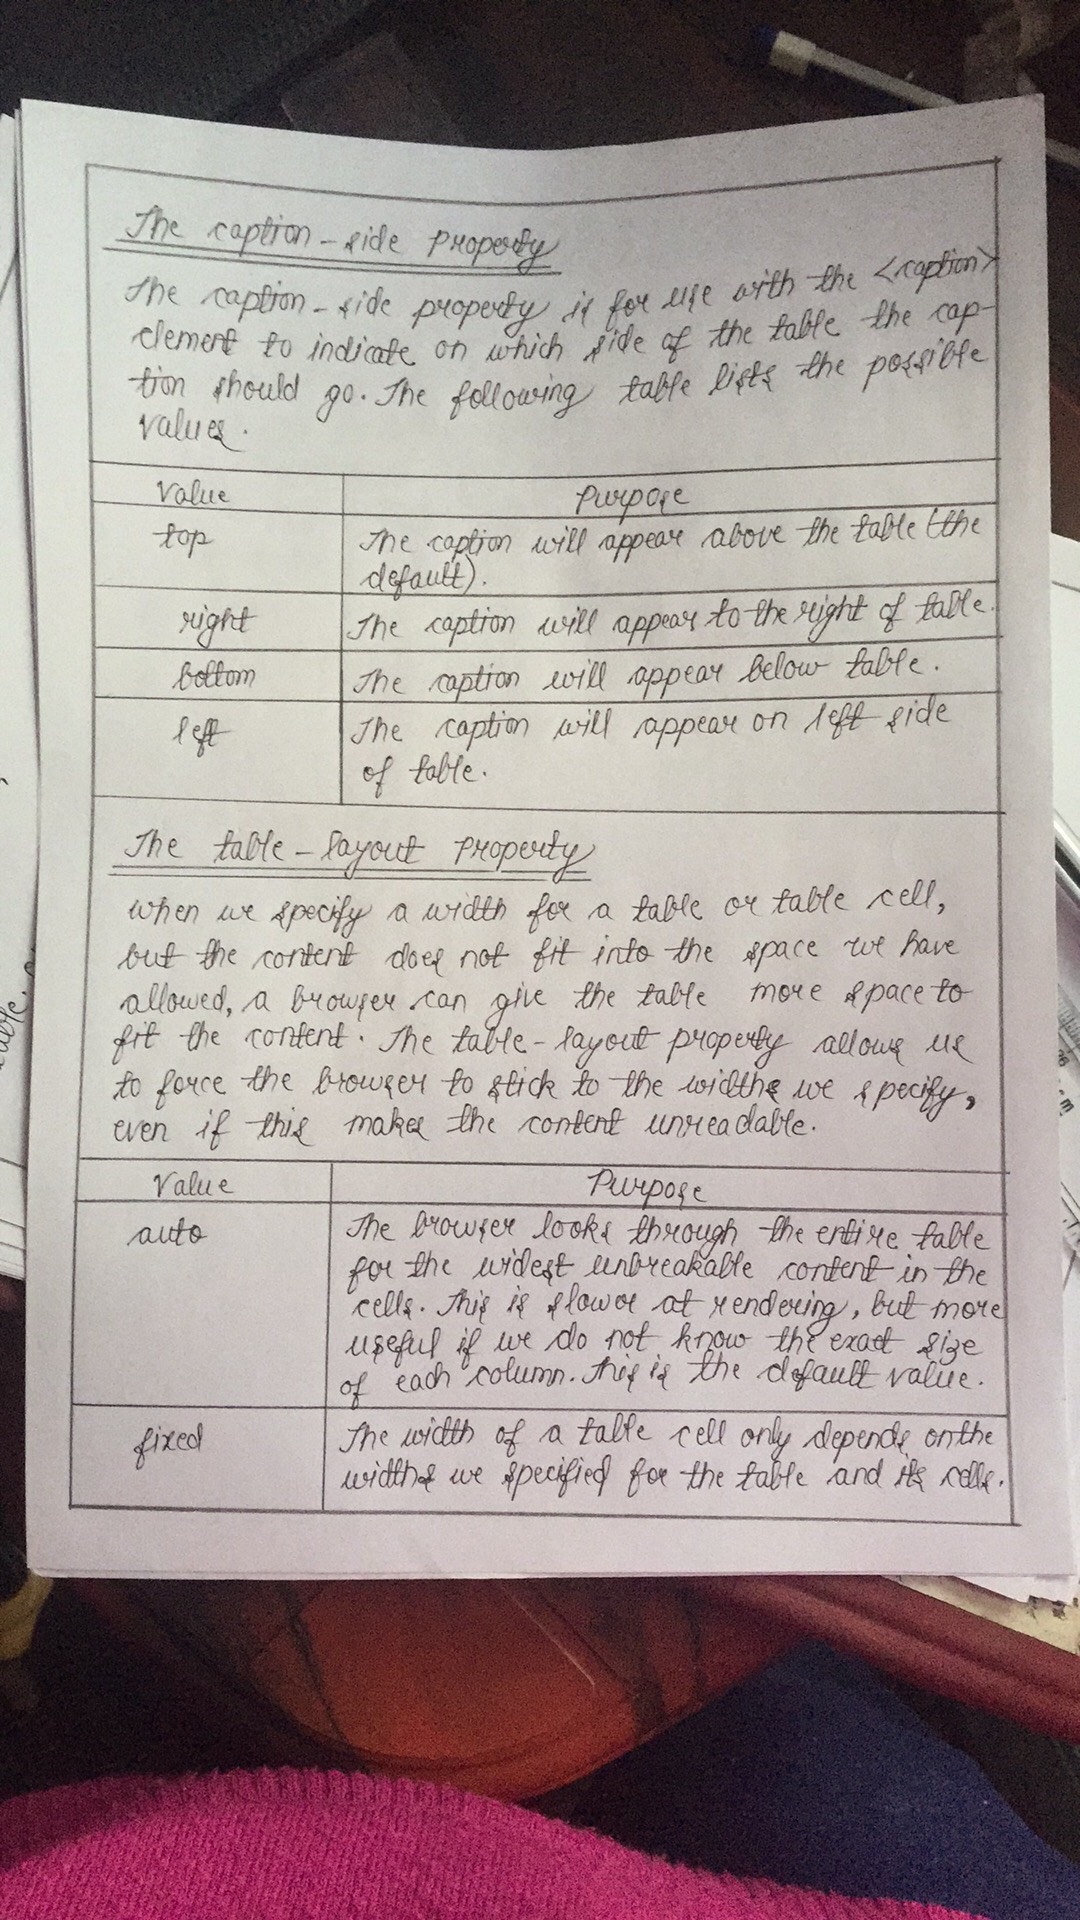 The caption-side Property
The caption-side property is for use with the <caption>
element to indicate on which side of the table the cap-
tion should go. The following table lists the possible
values.
Value Purpose
top The caption will appear above the table (the
default).
right The caption will appear to the right of table.
bottom The caption will appear below table.
left The caption will appear on left side
of table.
The table-layout Property
When we specify a width for a table or table cell,
but the content does not fit into the space we have
allowed, a browser can give the table more space to
fit the content. The table-layout property allows us
to force the browser to stick to the widths we specify,
even if this makes the content unreadable.
Value Purpose
auto The browser looks through the entire table
for the widest unbreakable content in the
cells. This is slower at rendering, but more
useful if we do not know the exact size
of each column. This is the default value.
fixed The width of a table cell only depends on the
widths we specified for the table and its cells.